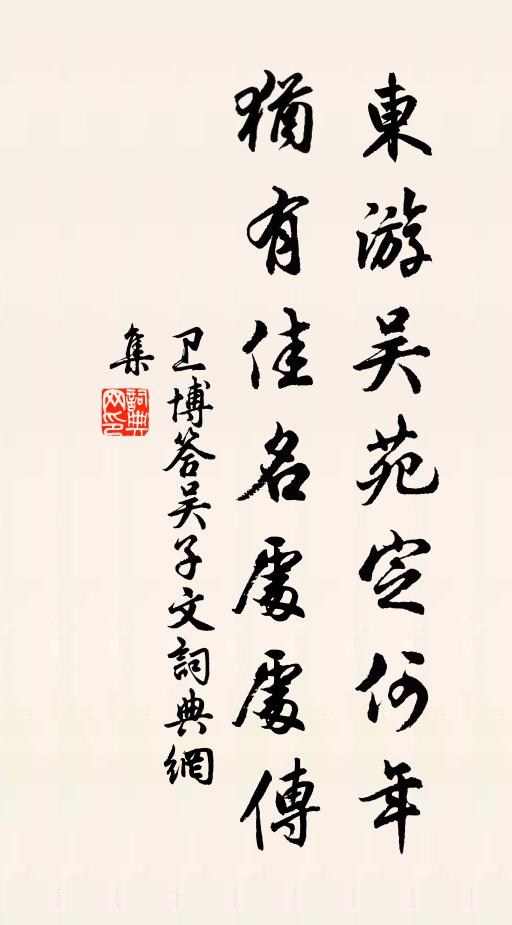 東游吴苑定何年
猶有佳名處處傳
卫博答吴子文詞典網
集
詞典网印